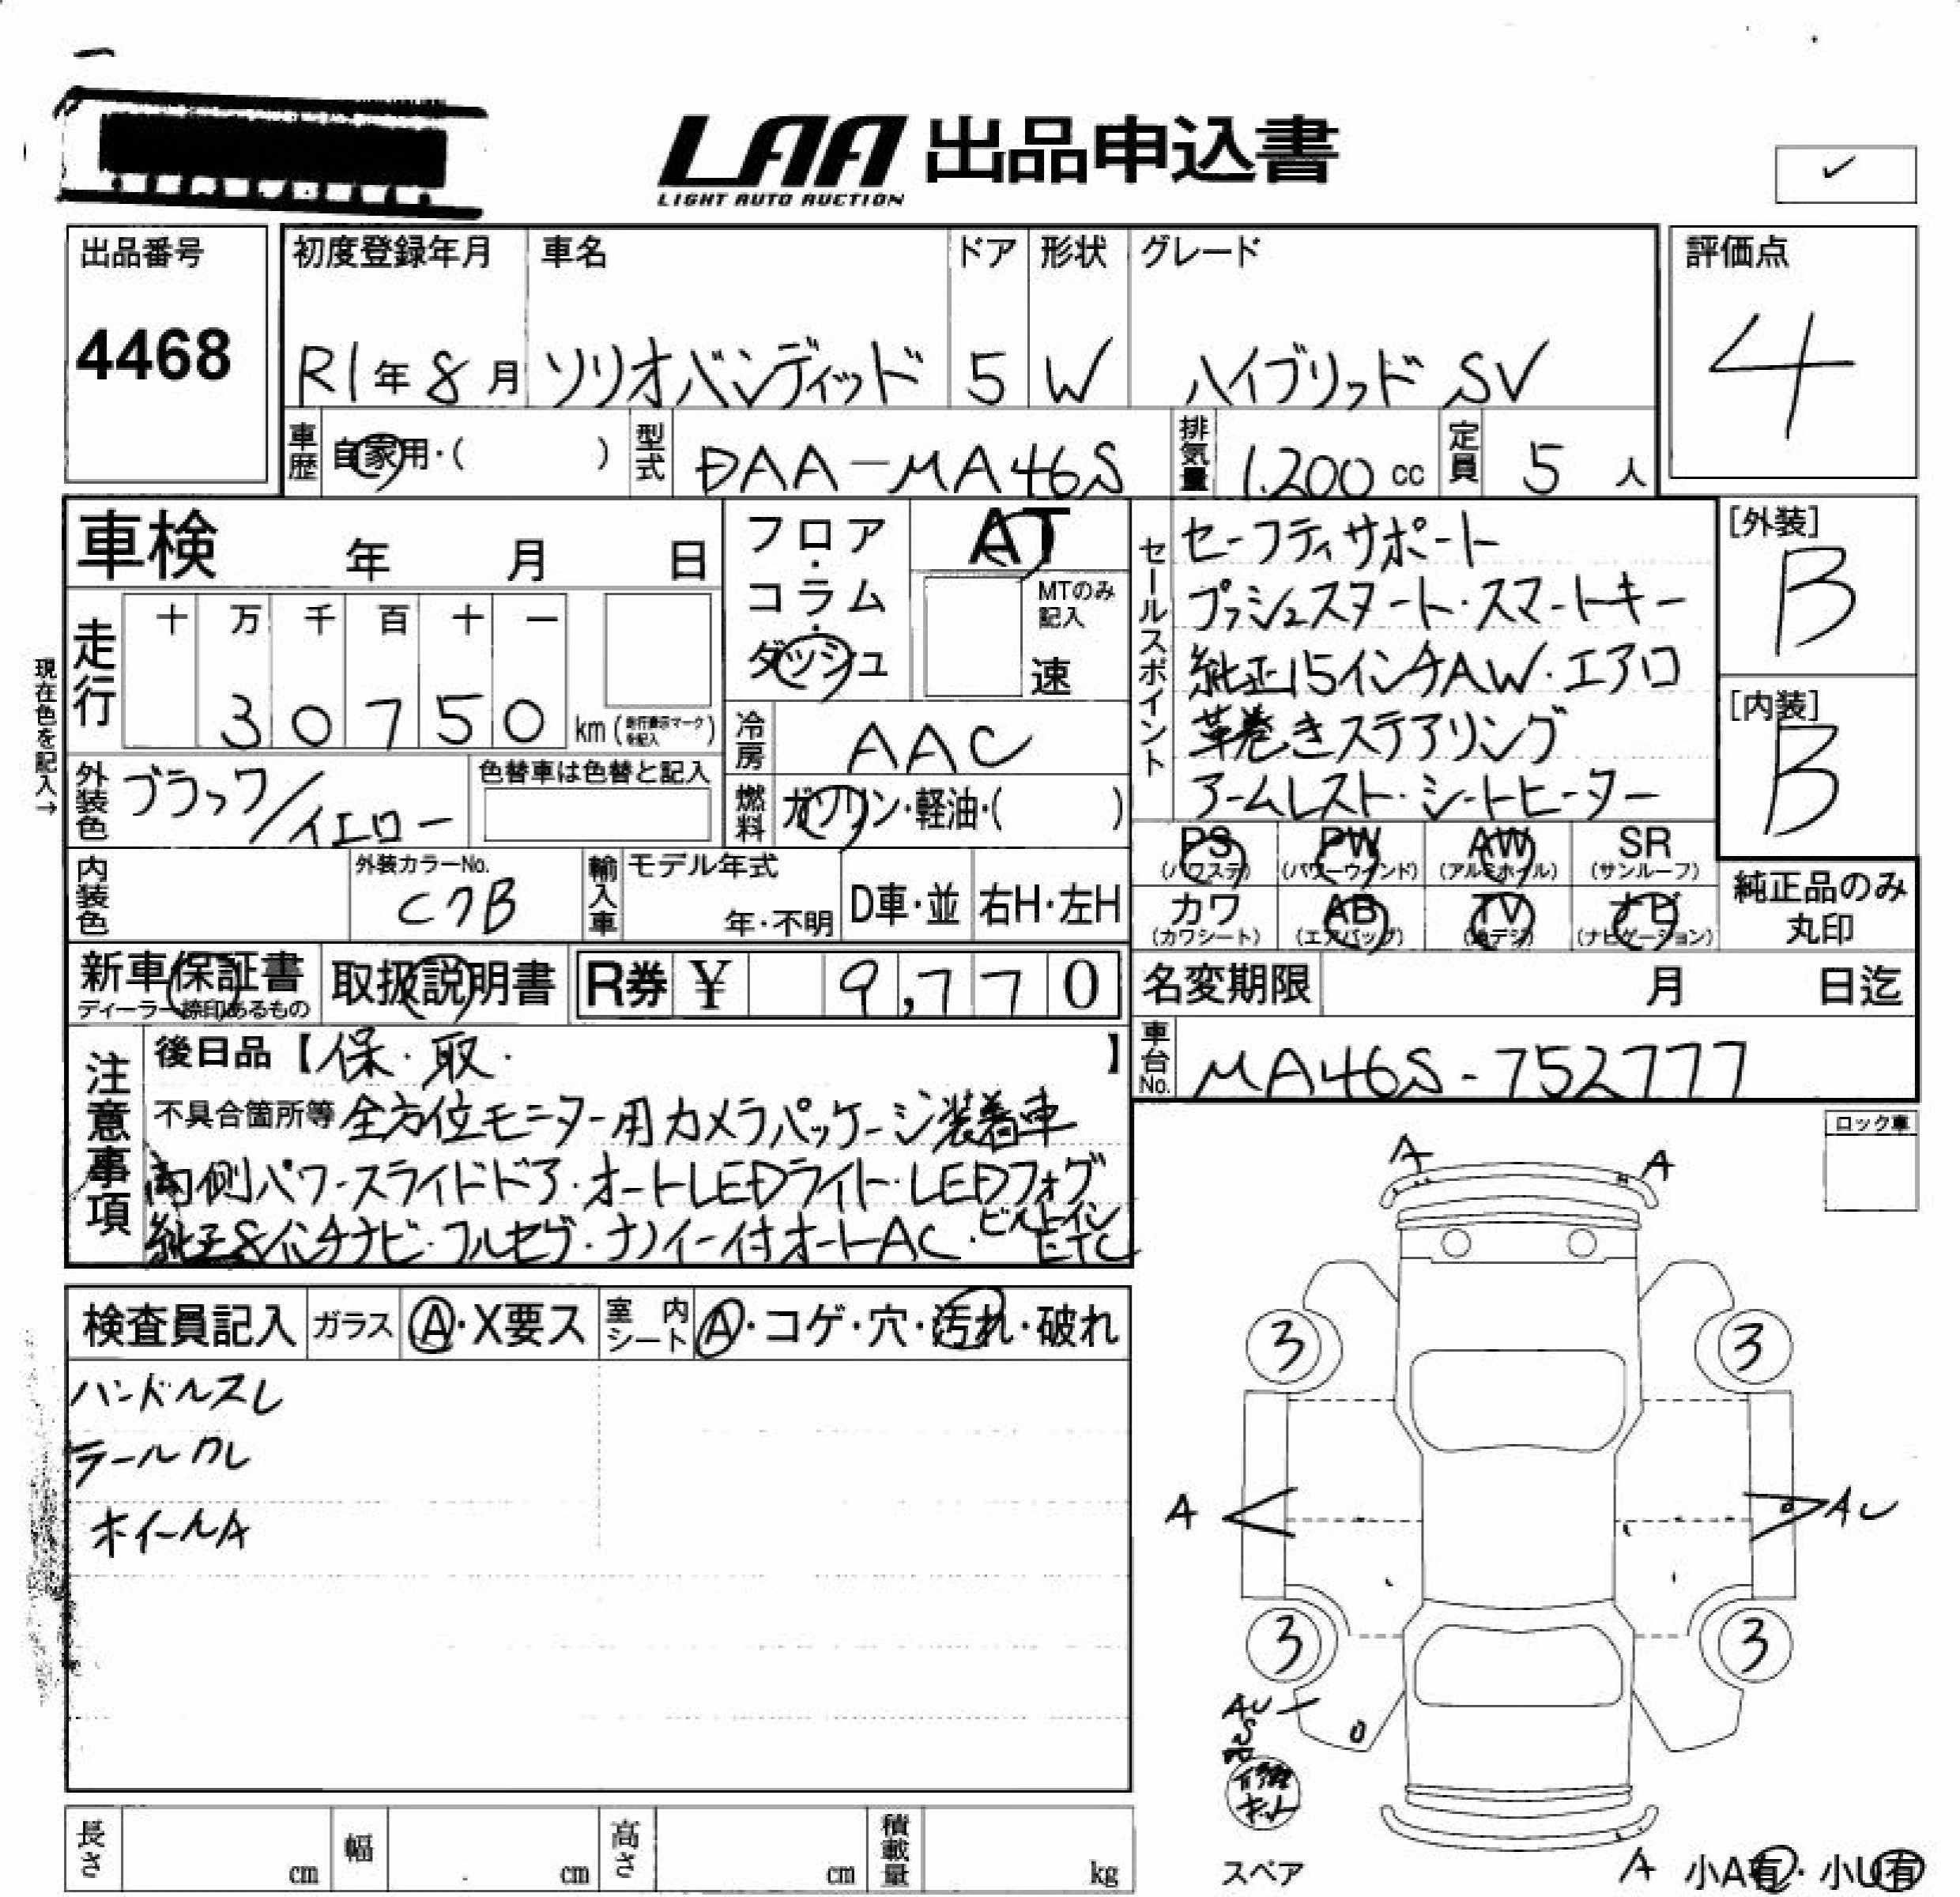 LAA 出品申込書
LIGHT AUTO AUCTION
出品番号
4468
初度登録年月 車名 ドア 形状 グレード
R1年8月 ソリオバンディッド 5 W ハイブリッド SV
評価点
4
車歴 自家用・( ) 型式 DAA-MA46S 排気量 1.200cc 定員 5人
車検 年 月 日
現在色を記入→
走行 十 万 千 百 十 一
30750 km(走行表示マークを記入)
フロア・コラム・ダッシュ
AT
MTのみ記入
速
冷房 AAC
燃料 ガソリン・軽油・( )
外装色 ブラック/イエロー
色替車は色替と記入
内装色
外装カラーNo.
C7B
輸入車 モデル年式
年・不明 D車・並 右H・左H
セールスポイント
セーフティサポート
プッシュスタート・スマートキー
純正15インチAW・エアロ
革巻きステアリング
アームレスト・シートヒーター
[外装]
B
[内装]
B
PS PW AW SR
(パワステ) (パワーウィンド) (アルミホイル) (サンルーフ)
カワ AB TV ナビ
(カワシート) (エアバッグ) (地デジ) (ナビゲーション)
純正品のみ
丸印
新車保証書
ディーラー捺印あるもの
取扱説明書
R券 ¥ 9,770
名変期限 月 日迄
車台No. MA46S-752777
注意事項
後日品【保・取・ 】
不具合箇所等 全方位モニター用カメラパッケージ装着車
両側パワースライドドア・オートLEDライト・LEDフォグ
純正8インチナビ・フルセグ・ナノイー付オートAC・ビルトインETC
検査員記入 ガラス A・X要ス 室内シート A・コゲ・穴・汚れ・破れ
ハンドルスレ
ラールカレ
ホイールA
ロック車
A A
3 3
A AU
3 3
AU
S
修理キット
スペア
A 小A有・小U有
長さ cm 幅 cm 高さ cm 積載量 kg